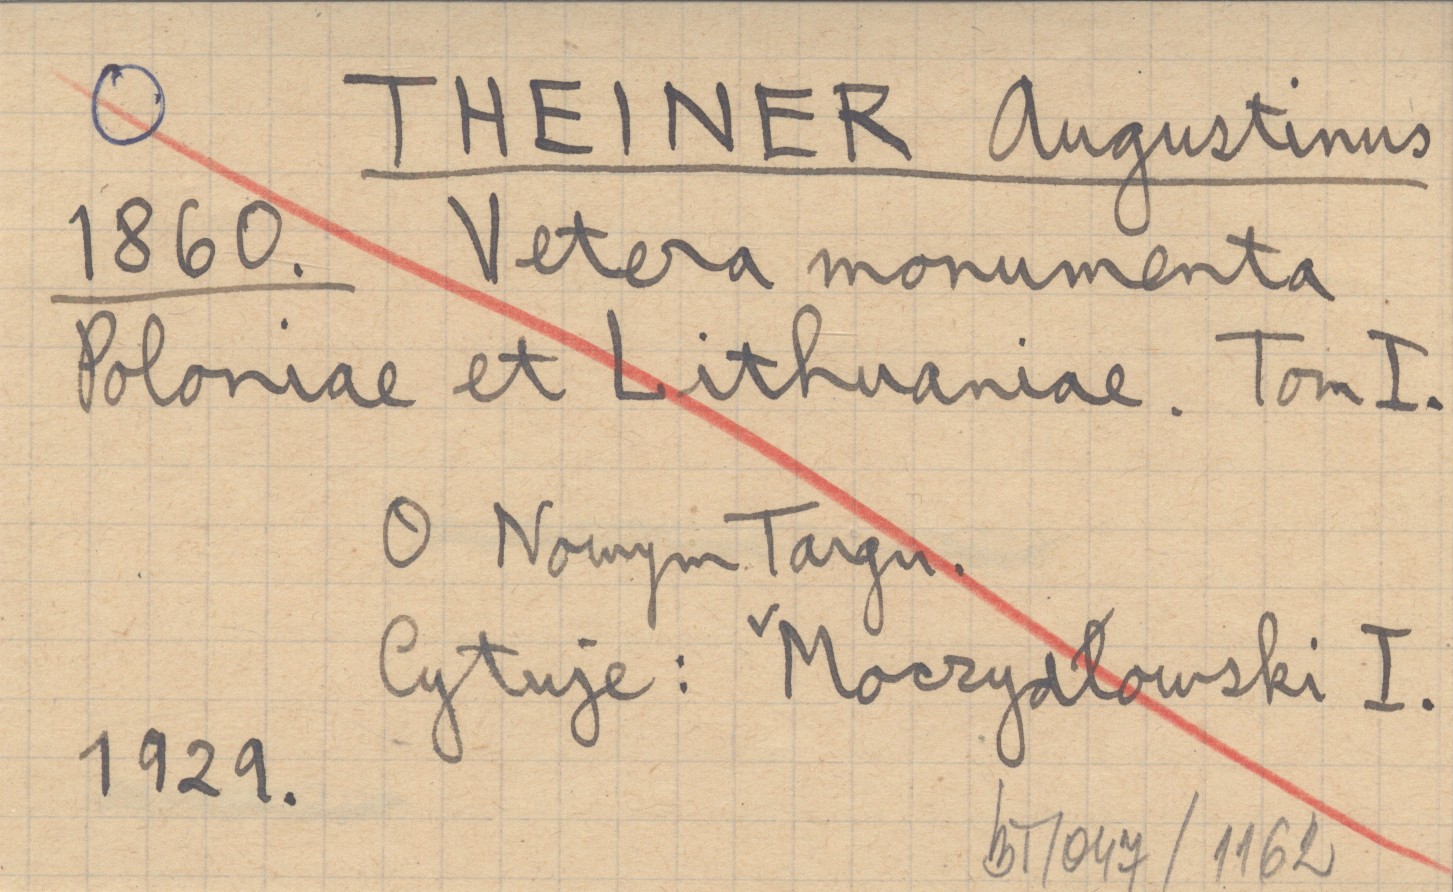 O THEINER Augustinus
1860. Vetera monumenta
Poloniae et Lithuaniae. Tom I.
O Nowym Targu.
Cytuje: ˅Moczydłowski I.
1929.
BT/047/1162